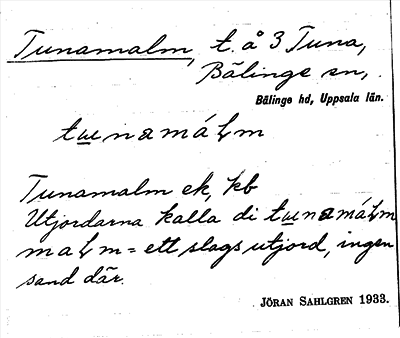 Tunamalm, t. å 3 Tuna,
Bälinge sn,.
Bälinge hd, Uppsala län.
tɯnamáɫm
Tunamalm ek, kb
Utjordarna kalla di tɯnamáɫm
maɫm = ett slags utjord, ingen
sand där.
JÖRAN SAHLGREN 1933.